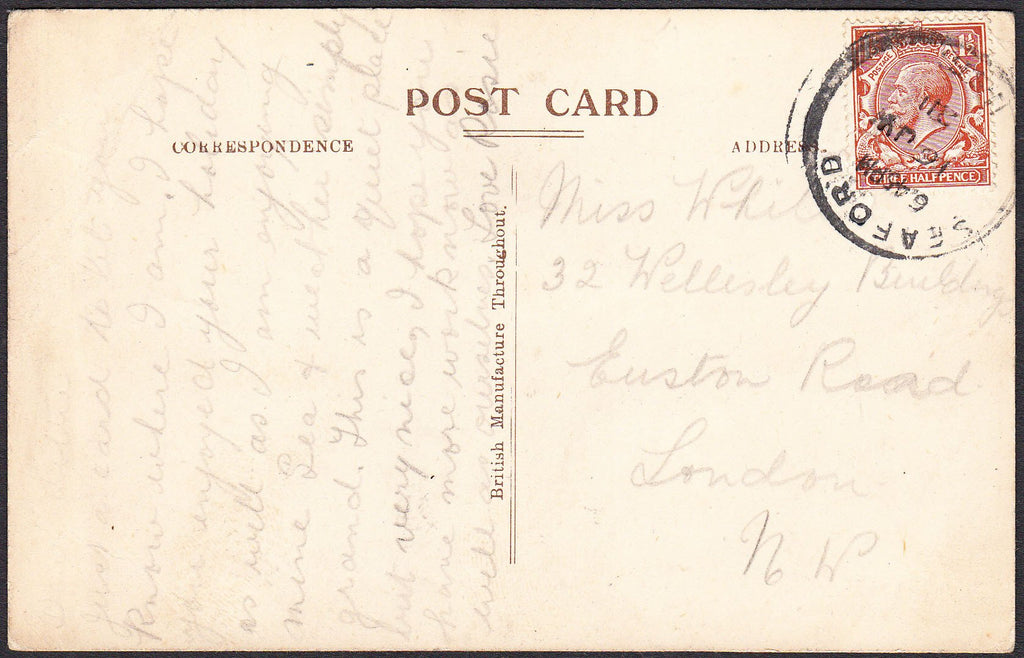 POST CARD
CORRESPONDENCE
ADDRESS.
British Manufacture Throughout.
POSTAGE REVENUE
THREE HALFPENCE
SEAFORD.
6.45 PM
Miss Whi
32 Wellesley Buildings
Euston Road
London
N W
Just a card to let you
know where I am. I hope
you enjoyed your holiday
as well as I am enjoying
mine Sea & weather simply
grand. This is a quiet place
but very nice, I hope you
have more work now
well as ourselves Love Rosie